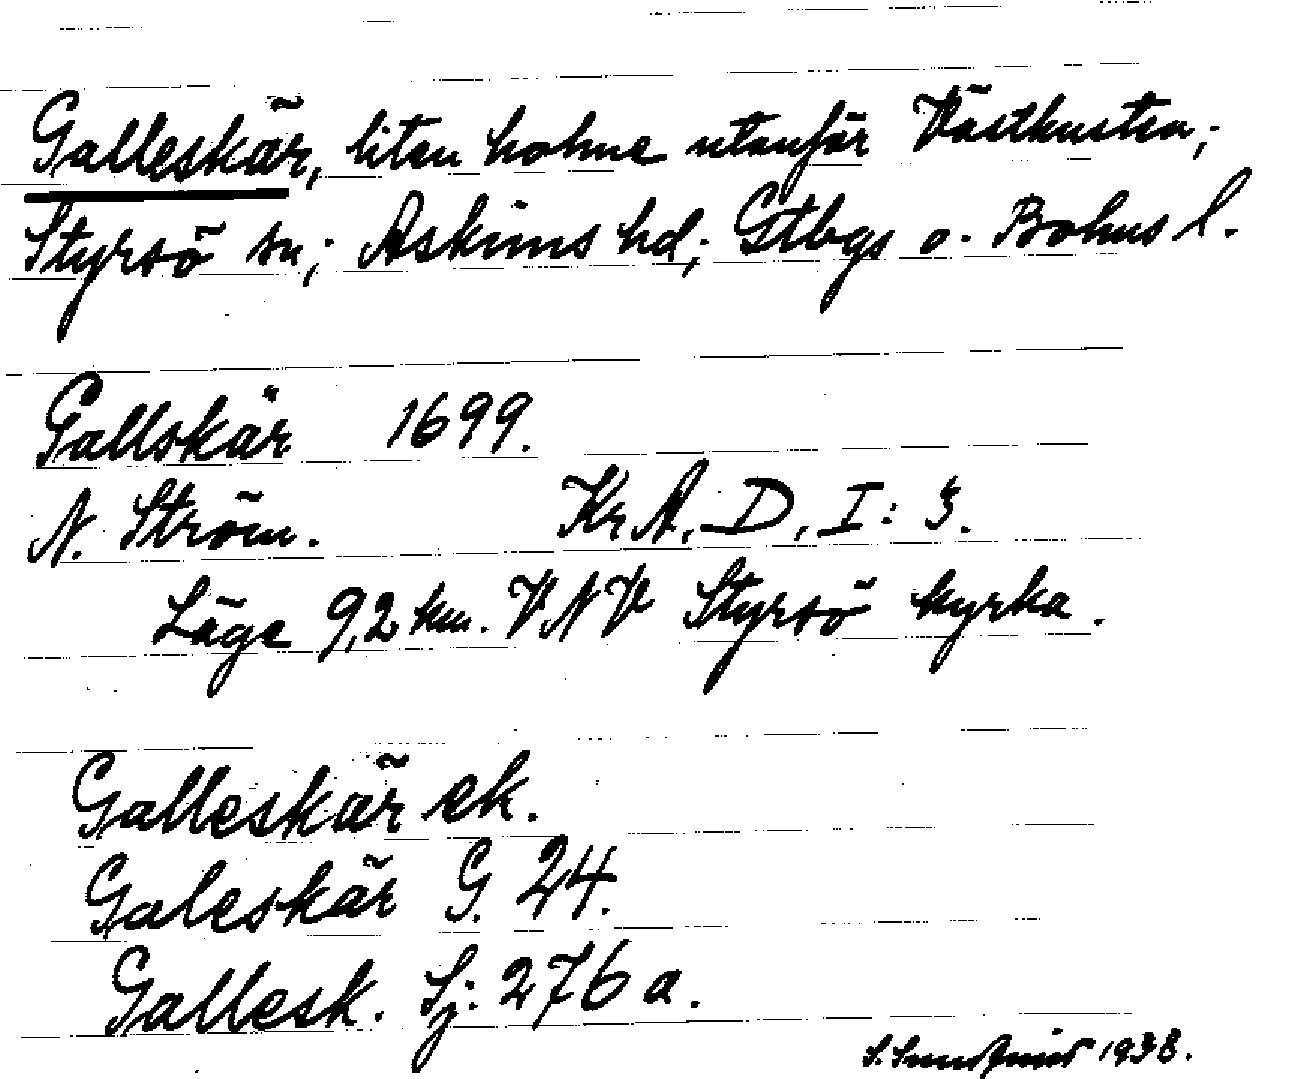 Galleskär, liten holme utanför Västkusten;
Styrsö sn; Askims hd; Gtbgs o. Bohus l.
Gallskär 1699.
N. Ström. Kr.A. D, I: 3.
Läge 9,2 km. VNV Styrsö kyrka.
Galleskär ek.
Galeskär G. 24.
Gallesk. Sj. 276 a.
S. 1938.